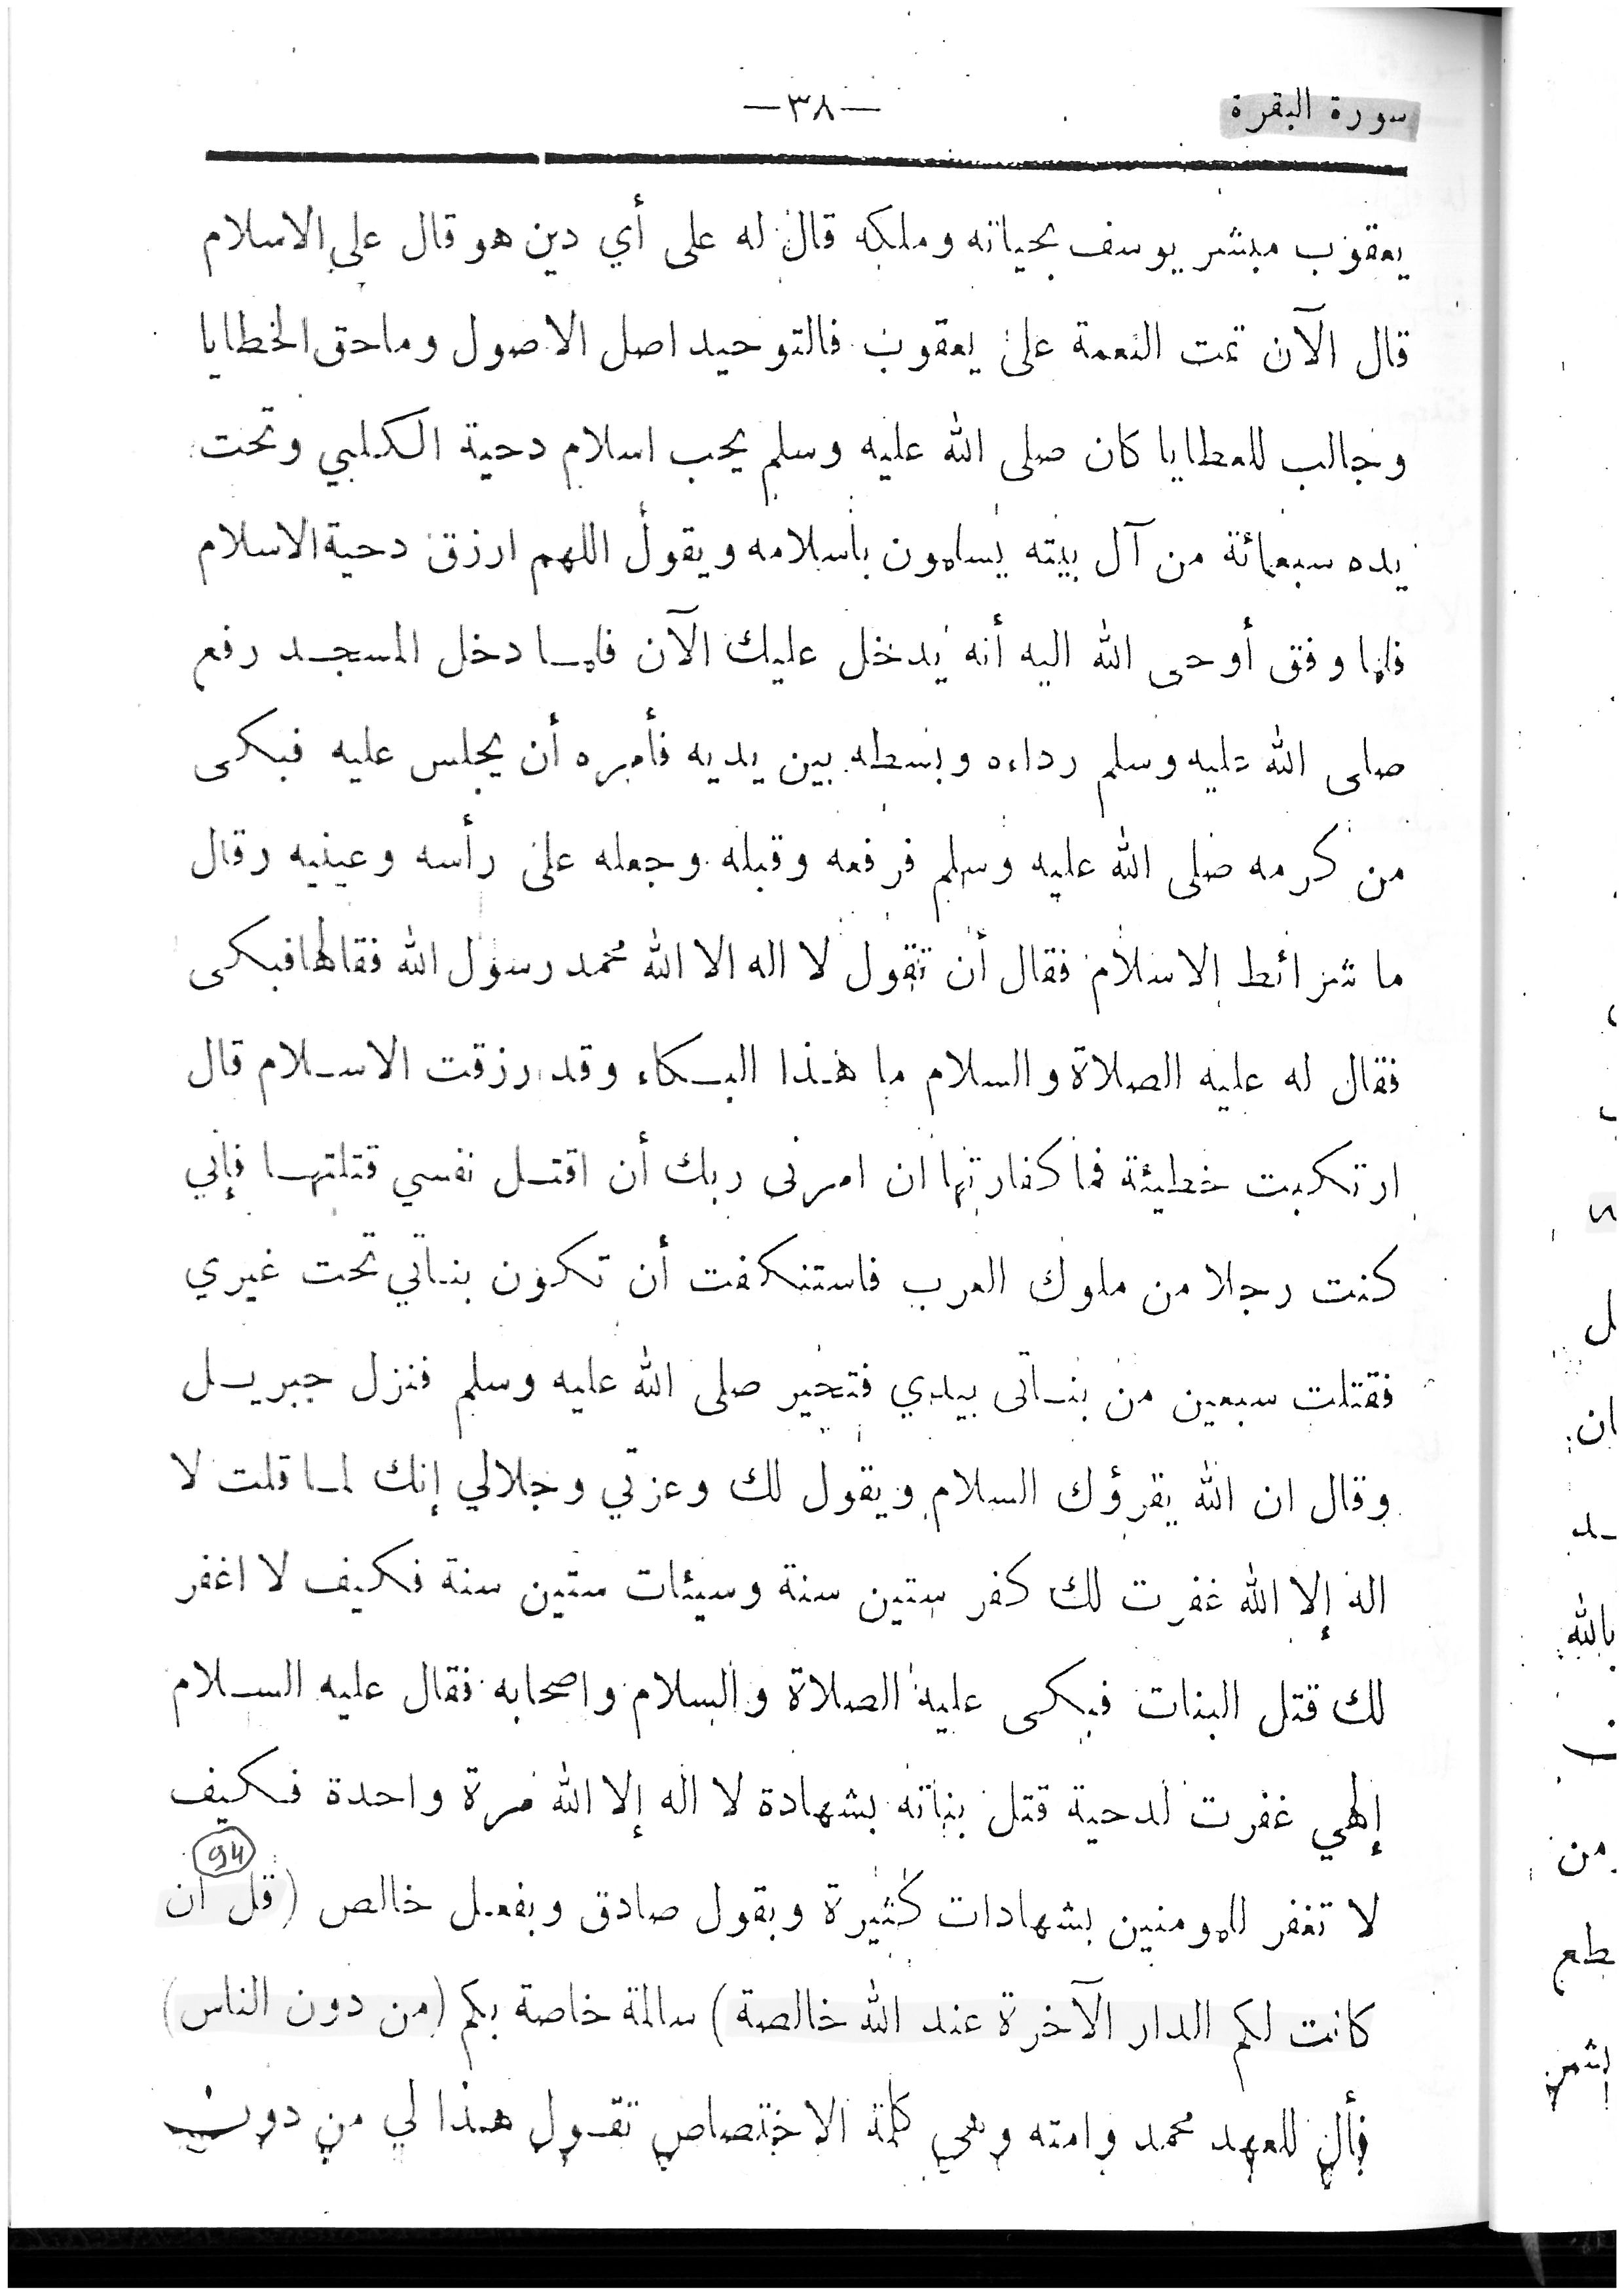 سورة البقرة
—٣٨—
يعقوب مبشر يوسف بحياته وملكه قال له على أي دين هو قال على الاسلام
قال الآن تمت النعمة على يعقوب فالتوحيد اصل الاصول وماحق الخطايا
وجالب للعطايا كان صلى الله عليه وسلم يحب اسلام دحية الكلبي وتحت
يده سبعمائة من آل بيته يسلمون باسلامه ويقول اللهم ارزق دحية الاسلام
فلما وفق أوحى الله اليه أنه يدخل عليك الآن فلما دخل المسجد رفع
صلى الله عليه وسلم رداءه وبسطه بين يديه فأمره أن يجلس عليه فبكى
من كرمه صلى الله عليه وسلم فرفعه وقبله وجعله على رأسه وعينيه وقال
ما شرائط الاسلام فقال أن تقول لا اله الا الله محمد رسول الله فقالها فبكى
فقال له عليه الصلاة والسلام ما هذا البكاء وقد رزقت الاسلام قال
ارتكبت خطيئة فما كفارتها ان امرنى ربك أن اقتل نفسي قتلتها فإني
كنت رجلا من ملوك العرب فاستنكفت أن تكون بناتي تحت غيري
فقتلت سبعين من بناتى بيدي فتحير صلى الله عليه وسلم فنزل جبريل
وقال ان الله يقرؤك السلام ويقول لك وعزتي وجلالي إنك لما قلت لا
اله إلا الله غفرت لك كفر ستين سنة وسيئات ستين سنة فكيف لا اغفر
لك قتل البنات فبكى عليه الصلاة والسلام واصحابه فقال عليه السلام
إلهي غفرت لدحية قتل بناته بشهادة لا اله إلا الله مرة واحدة فكيف
94
لا تغفر للمومنين بشهادات كثيرة وبقول صادق وبفعل خالص (قل ان
كانت لكم الدار الآخرة عند الله خالصة) سالمة خاصة بكم (من دون الناس)
فأل للعهد محمد وامته وهي كلمة الاختصاص تقول هذا لي من دون